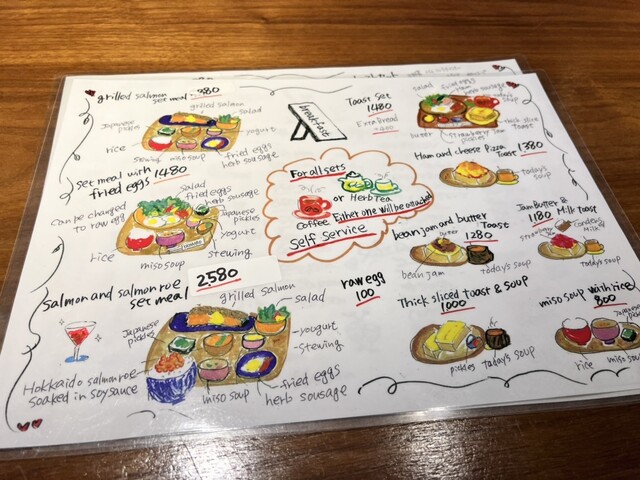 grilled salmon
set meal 980
grilled salmon
salad
Japanese
pickles
yogurt
rice
stewing
miso soup
fried eggs
herb sausage
set meal with
fried eggs 1480
can be changed
to raw egg
salad
fried eggs
herb sausage
Japanese
pickles
yogurt
rice
miso soup
stewing
salmon and salmon roe
set meal 2580
grilled salmon
salad
Japanese
pickles
yogurt
stewing
Hokkaido salmon roe
soaked in soy sauce
miso soup
fried eggs
herb sausage
raw egg
100
breakfast
For all sets
or Herb Tea
Coffee Either one will be attached
self service
Toast Set
1480
Extra Bread
salad
butter
strawberry jam
thick slice
toast
Ham and cheese Pizza
Toast 1380
today's
soup
bean jam and butter
Toast
1280
butter
bean jam
today's soup
Jam Butter &
Milk Toast
1180
strawberry
jam
Condensed
Milk
today's
soup
Thick sliced toast & soup
1000
pickles
today's soup
miso soup with rice
800
Japanese
pickles
rice
miso soup